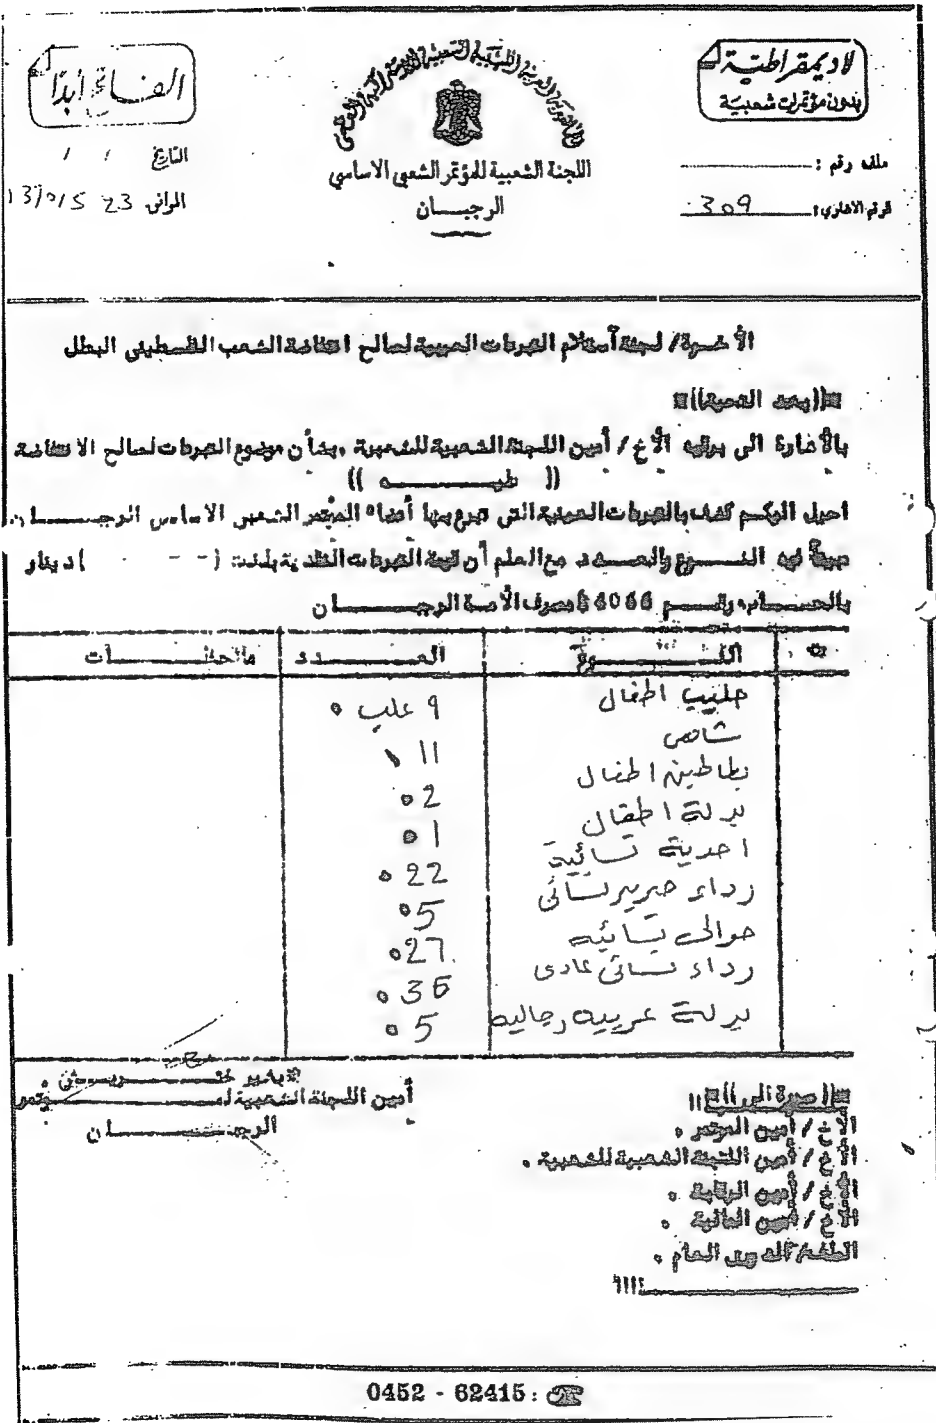 لا ديمقراطية
بدون مؤتمرات شعبية
الفاتح أبدا
الجماهيرية العربية الليبية الشعبية الاشتراكية العظمى
اللجنة الشعبية للمؤتمر الشعبي الاساسي
الرجبان
ملف رقم :
الرقم الاشاري : 309
التاريخ / /
الموافق 23
الأخوة / لجنة أستلام التبرعات العينية لصالح انتفاضة الشعب الفلسطيني البطل
((بعد التحية))
بالأشارة الى برقيه الأخ / أمين اللجنة الشعبية للشعبية . بشأن موضوع التبرعات لصالح الانتفاضة
(( عليـــــه ))
احيل اليكم كشف بالتبرعات العينية التى تبرع بها أعضاء المؤتمر الشعبى الاساسى الرجبـــان
مبيناً فيه النــوع والعــدد مع العلم أن قيمة التبرعات النقدية بلغت ( - - ) دينار
بالحساب رقــم بمصرف الأمــة الرجبــــان
م النــــوع العــــدد ملاحظــــات
حليب اطفال 9 علب
شامبو 11
بطاطين اطفال 2
بدلة اطفال 1
احدية نسائية 22
رداء حرير نسائى 5
حوالى نسائيه 27
رداء نسائى عادى 36
بدلة عربيه رجاليه 5
أمين اللجنة الشعبية لمــؤتمر
الرجبـــــان
((صورة الى))
الأخ / أمين المؤتمر .
الأخ / أمين اللجنة الشعبية للشعبية .
الأخ / أمين الرقابة .
الأخ / أمين المالية .
الملف / الدورى العام .
0452 - 62415 : ☎